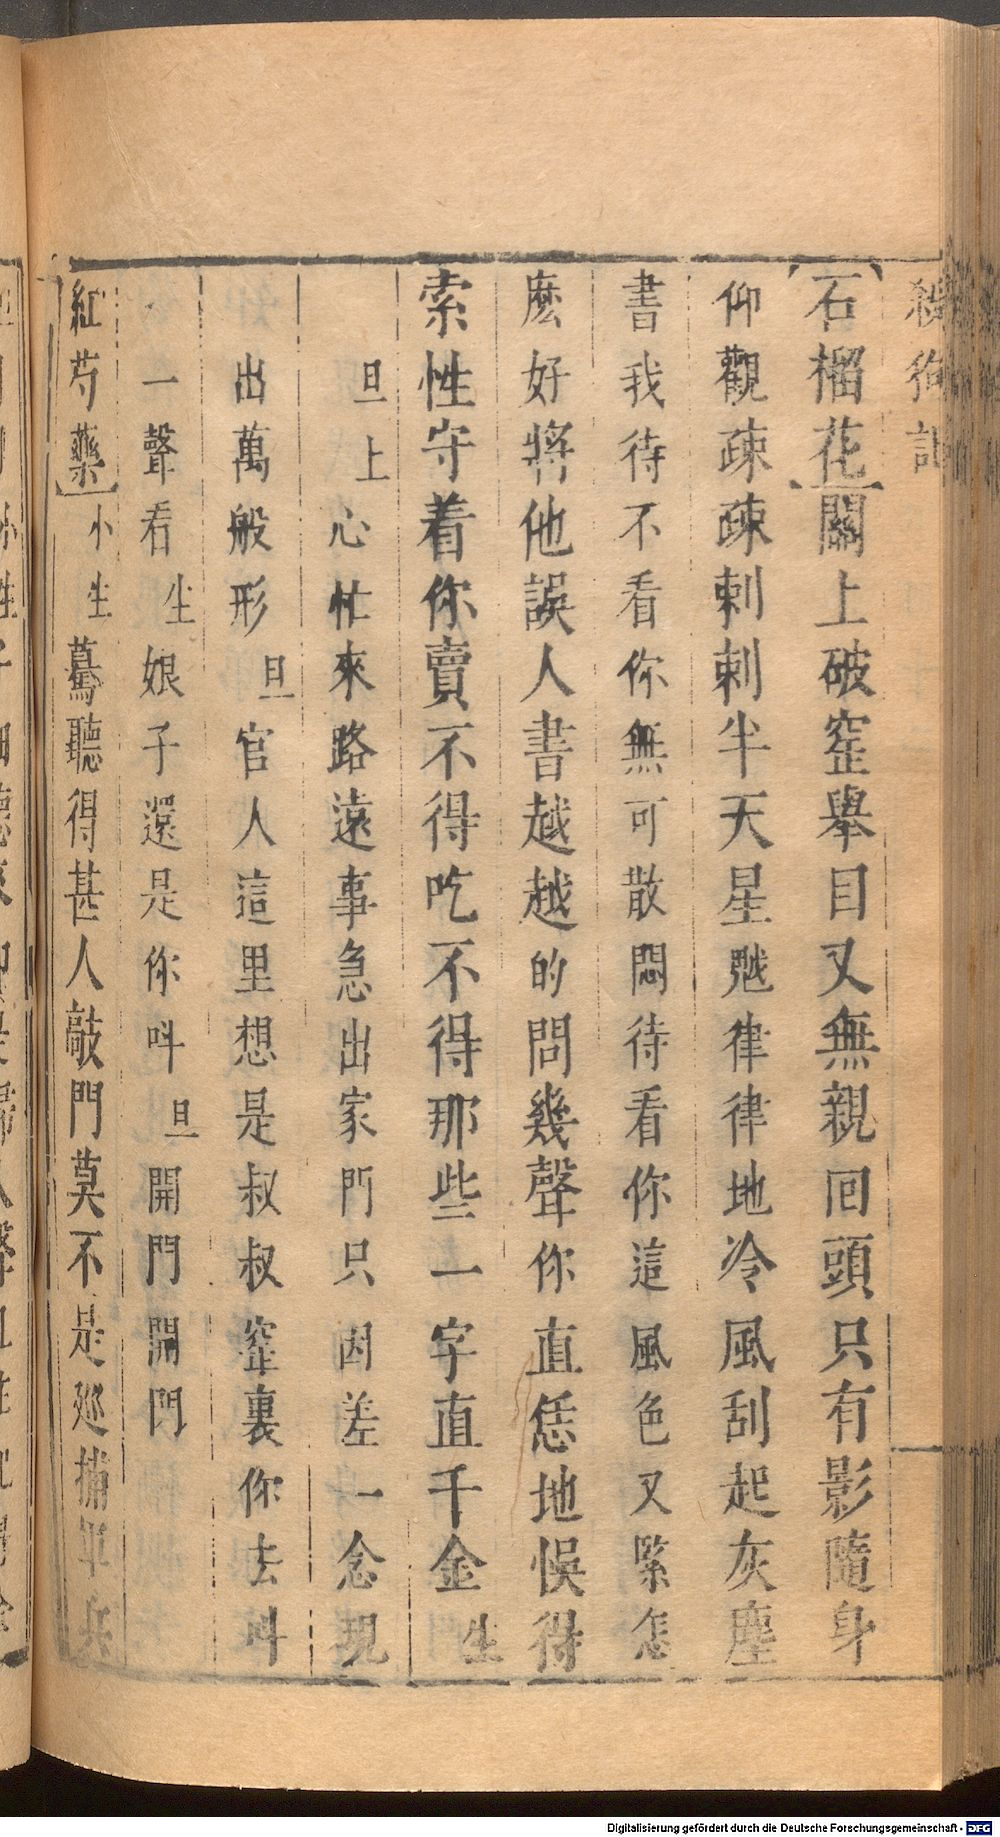 殺狗記
【石榴花】關上破窑舉目又無親囘頭只有影隨身
仰觀疎疎剌剌半天星𩗗律律地冷風刮起灰塵
書我待不看你無可散悶待看你這風色又緊怎
麽好將他誤人書越越的問幾聲你直恁地悞得
索性守着你賣不得吃不得那些一字直千金生
旦上心忙來路遠事急出家門只因差一念現
出萬般形旦官人這里想是叔叔窑裏你去呌
一聲看生娘子還是你呌旦開門開門
【紅芍藥】小生驀聽得甚人敲門莫不是廵捕軍兵
Digitalisierung gefördert durch die Deutsche Forschungsgemeinschaft - DFG